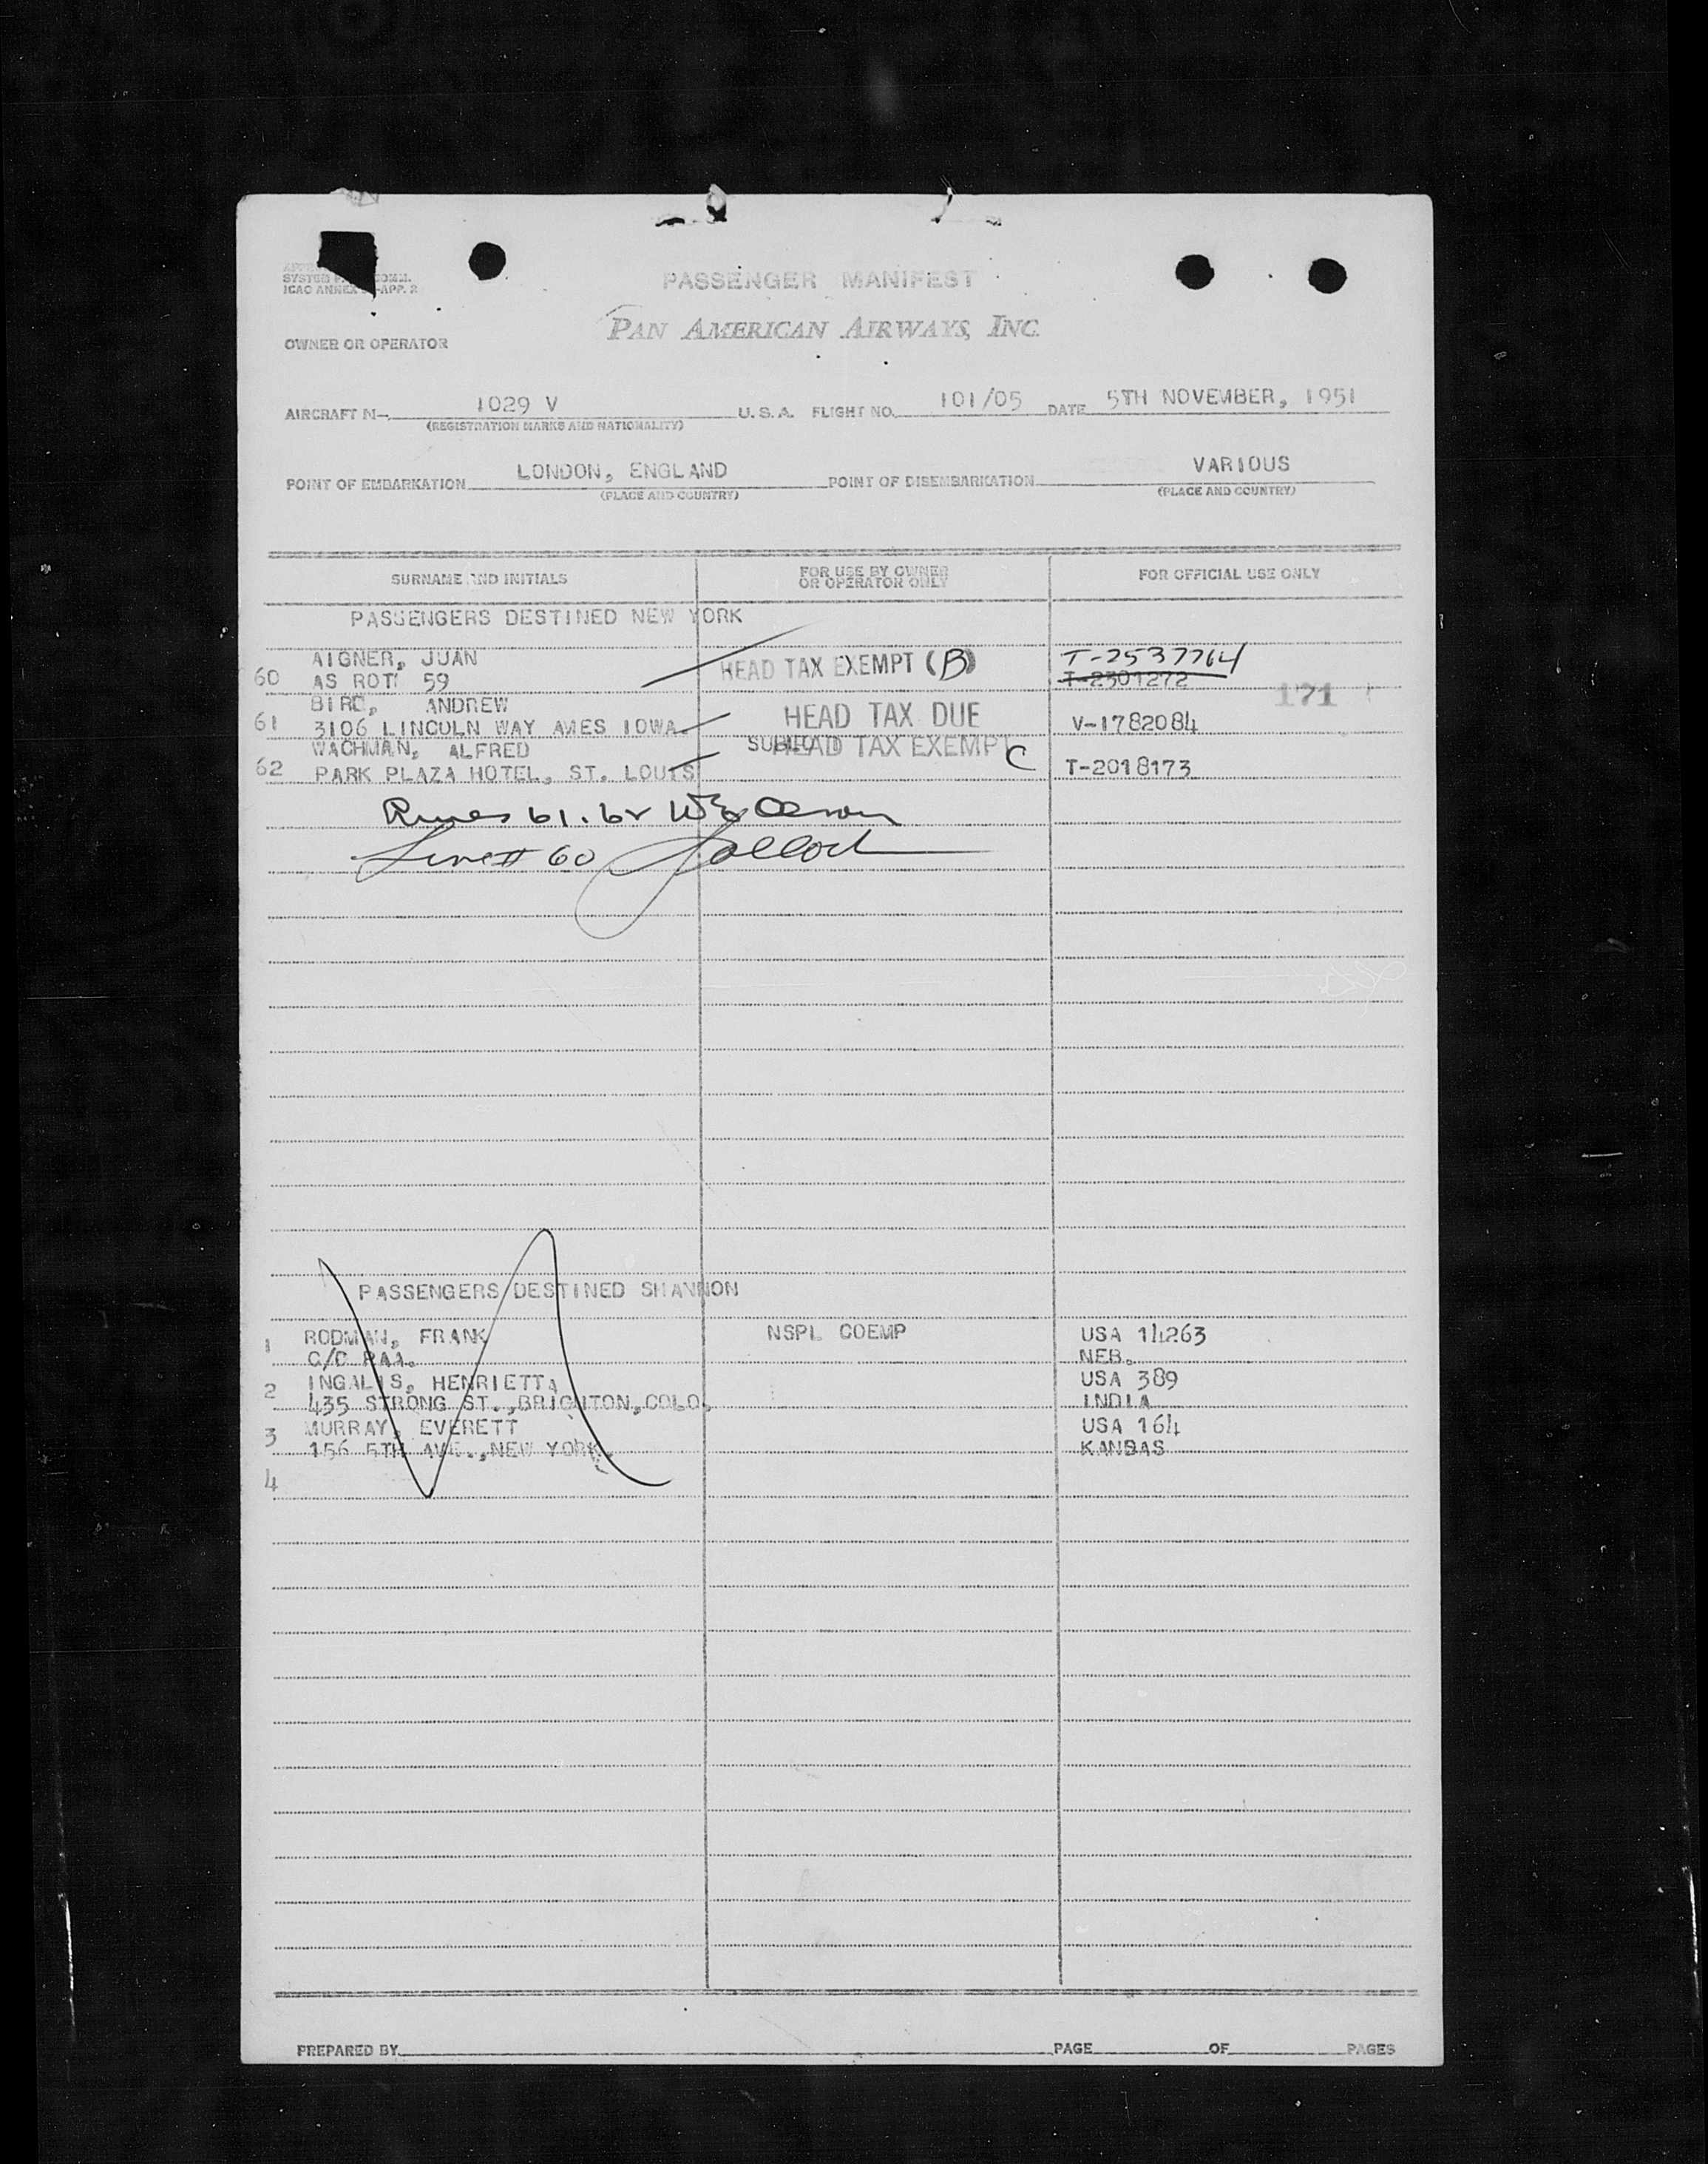 SYSTEM
ICAO ANNEX -APP. 2
PASSENGER MANIFEST
OWNER OR OPERATOR
PAN AMERICAN AIRWAYS, INC.
AIRCRAFT N- 1029 V U. S. A. FLIGHT NO. 101/05 DATE 5TH NOVEMBER, 1951
(REGISTRATION MARKS AND NATIONALITY)
POINT OF EMBARKATION LONDON, ENGLAND POINT OF DISEMBARKATION VARIOUS
(PLACE AND COUNTRY) (PLACE AND COUNTRY)
SURNAME AND INITIALS FOR USE BY OWNER OR OPERATOR ONLY FOR OFFICIAL USE ONLY
PASSENGERS DESTINED NEW YORK
AIGNER, JUAN HEAD TAX EXEMPT (B) T-2537764
60 AS ROTI 59 T-2301272
BIRD, ANDREW HEAD TAX DUE 171
61 3106 LINCOLN WAY AMES IOWA. V-1782084
WACHMAN, ALFRED HEAD TAX EXEMPT C
62 PARK PLAZA HOTEL, ST. LOUIS T-2018173
61.62
Line # 60
PASSENGERS DESTINED SHANNON
1 RODMAN, FRANK NSPL COEMP USA 14263
C/O PAA. NEB.
2 INGALIS, HENRIETTA USA 389
435 STRONG ST., BRIGHTON, COLO. INDIA
3 MURRAY, EVERETT USA 164
156 5TH AVE., NEW YORK. KANSAS
4
PREPARED BY PAGE OF PAGES